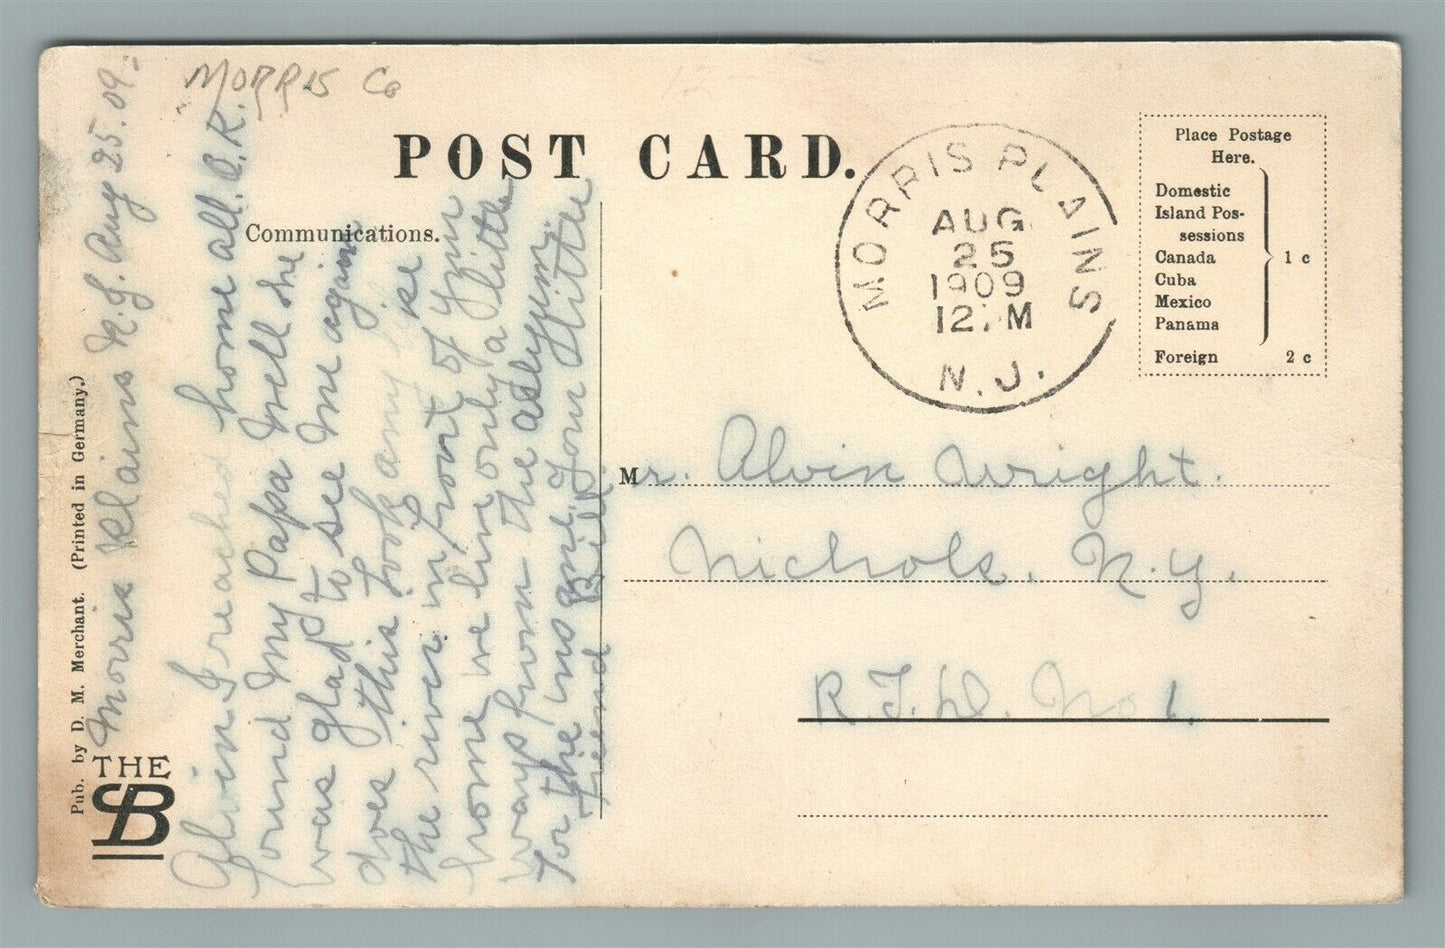 MORRIS Co
POST CARD.
Communications.
MORRIS PLAINS
AUG
25
1909
12 M
N.J.
Place Postage
Here.
Domestic
Island Pos-
sessions
Canada
Cuba
Mexico
Panama
1 c
Foreign 2 c
Mr. Alvin Wright.
Nichols. N.Y.
R.F.D. No 1.
Pub. by D. M. Merchant. (Printed in Germany.)
THE
SB
Morris Plains N.J. Aug 25. 09.
Alvin I reached home all O.K.
found my Papa Well he
was glad to see me again
does this look any like
the river in front of your
home we live only a little
ways from the assylym.
for the ins one. your little
friend Bill.